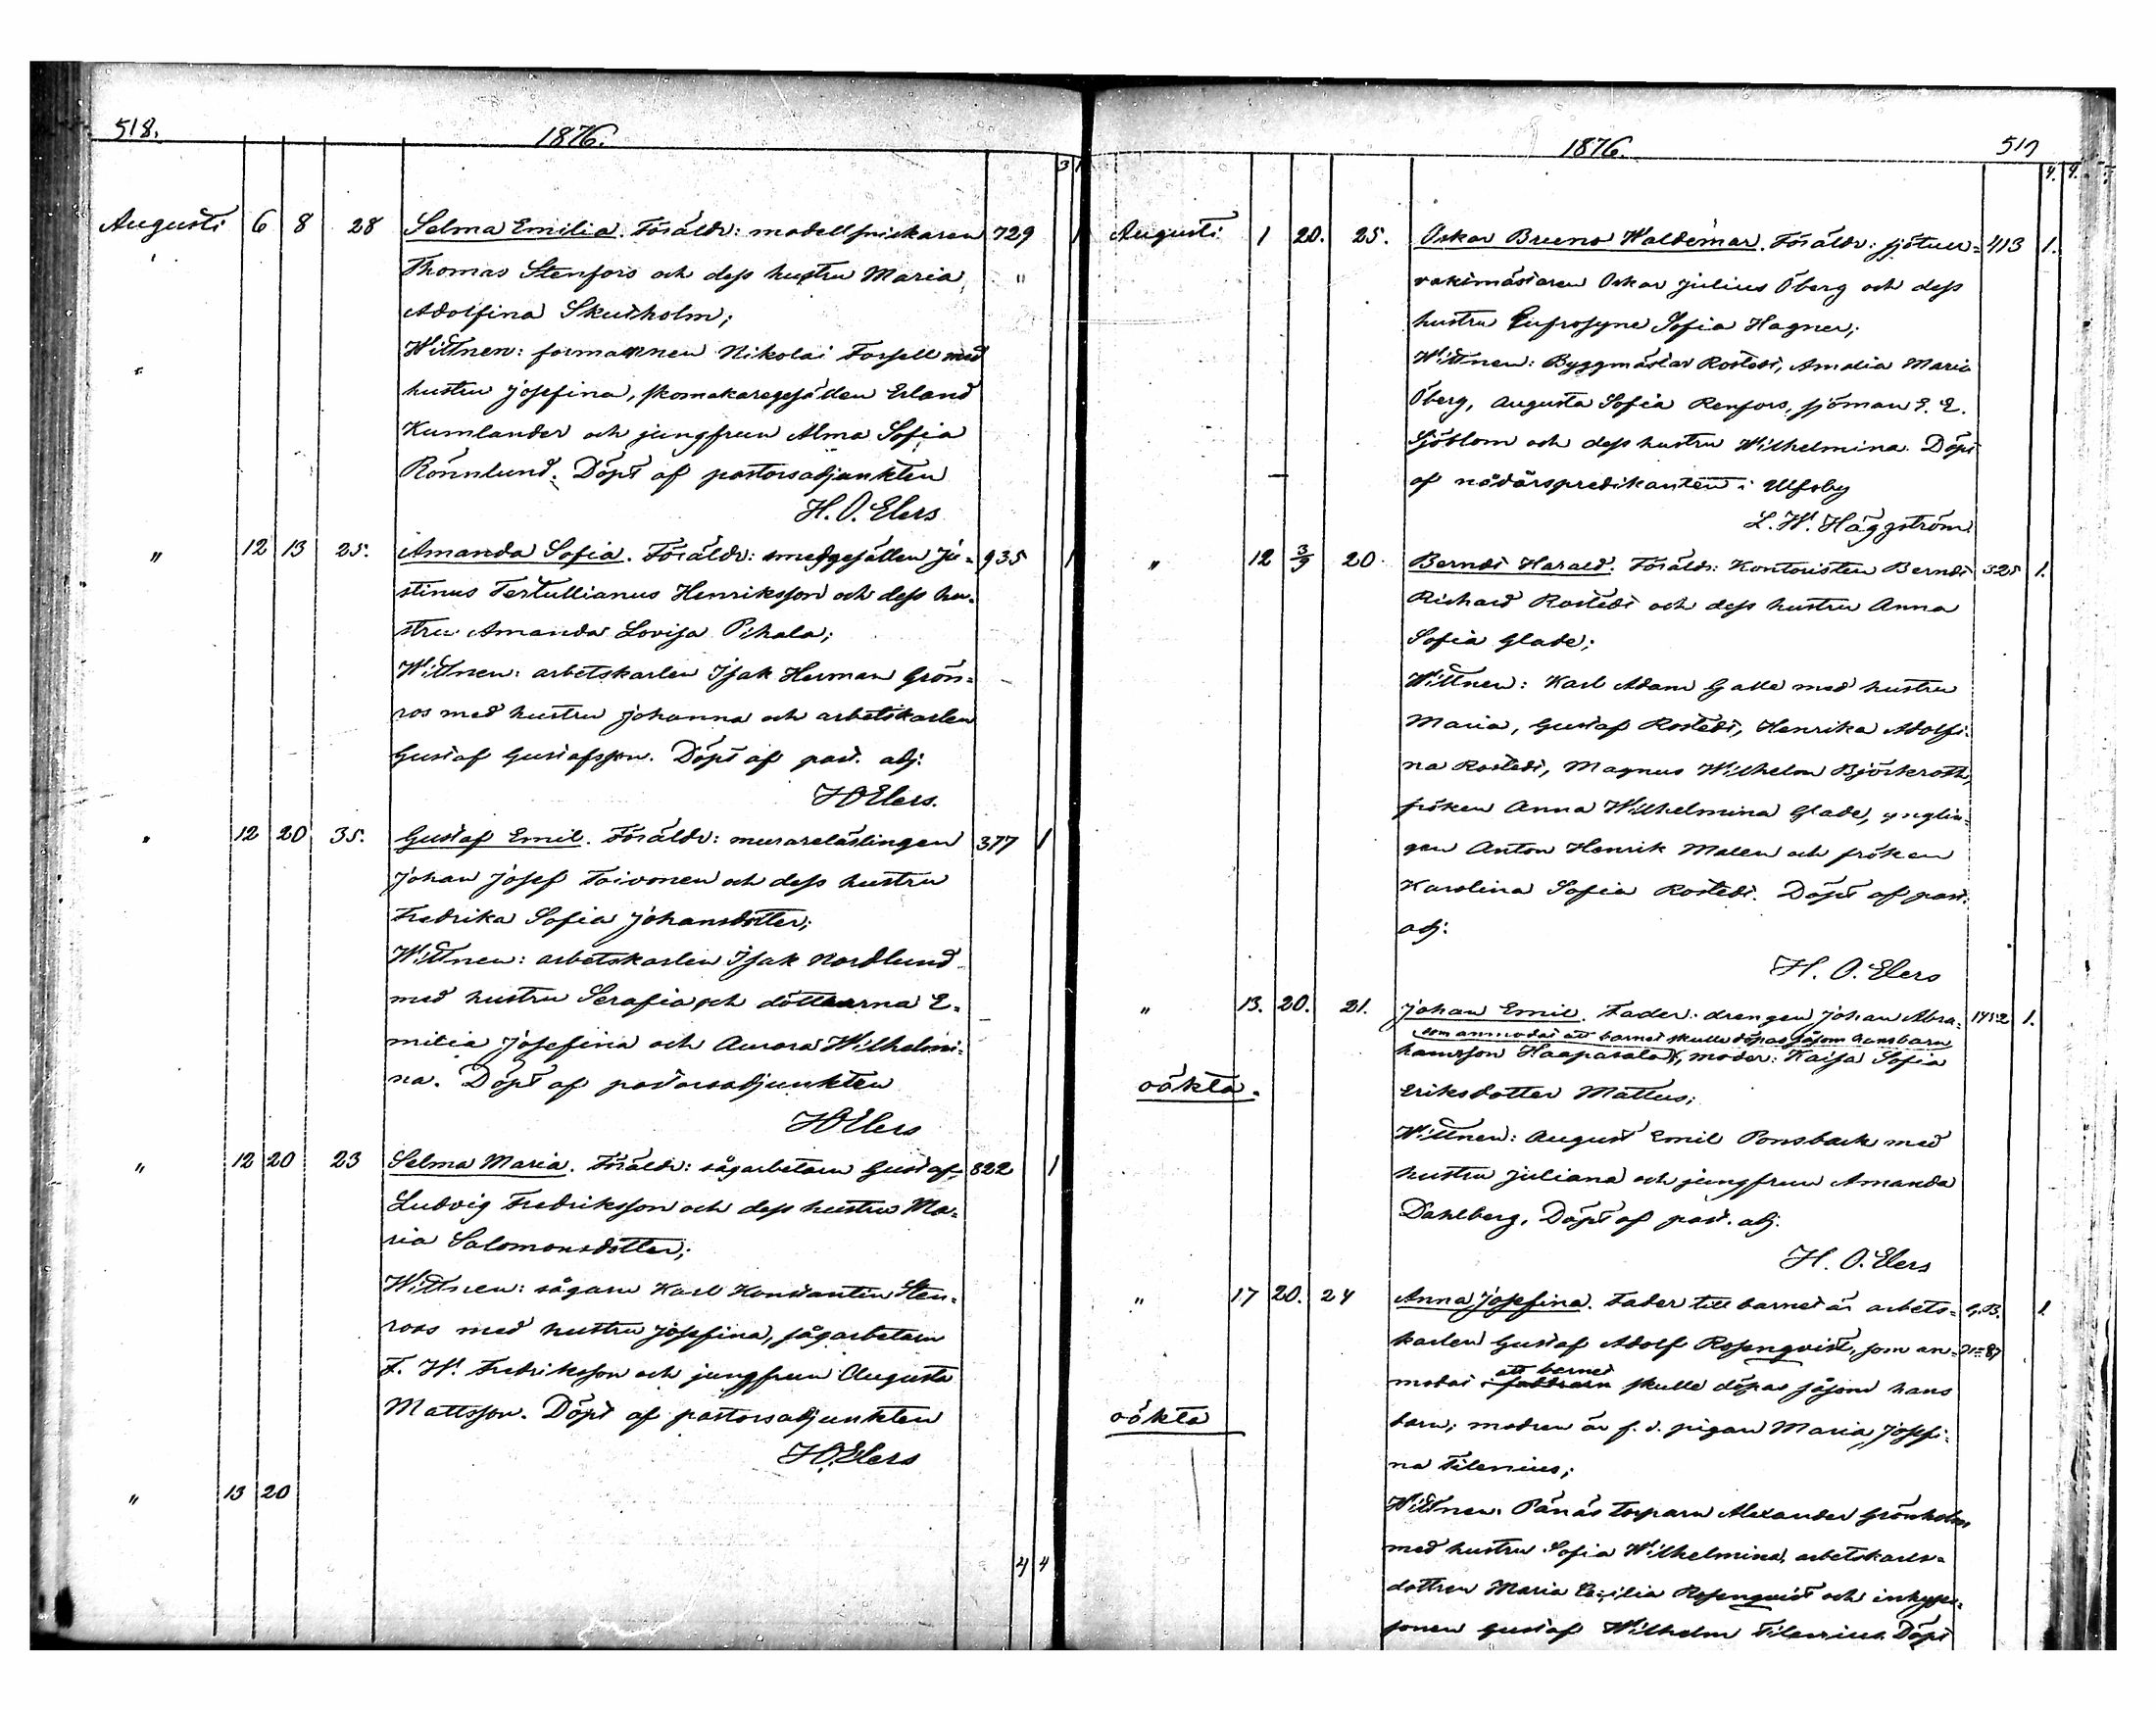 518.
1876.
3 1
Augusti 6 8 28 Selma Emilia. Föräldr: modellsnickaren 729 1
Thomas Stenfors och dess hustru Maria "
Adolfina Skutholm;
Wittnen: formannen Nikolai Forsell med
hustru Josefina, skomakaregesällen Erland
Kumlander och jungfrun Alma Sofia
Rönnlund. Döpt af pastorsadjunkten
H. O. Elers
" 12 13 25. Amanda Sofia. Föräldr: smedgesällen Ju- 935 1
stinus Tertullianus Henriksson och dess hu-
stru Amanda Lovisa Pihala;
Wittnen: arbetskarlen Isak Herman Grön-
ros med hustru Johanna och arbetskarlen
Gustaf Gustafsson. Döpt af past. adj:
HOElers.
" 12 20 35. Gustaf Emil. Föräldr: murarelärlingen 377 1
Johan Josef Toivonen och dess hustru
Fredrika Sofia Johansdotter;
Wittnen: arbetskarlen Isak Nordlund
med hustru Serafia och döttrarna E-
milia Josefina och Aurora Wilhelmi-
na. Döpt af pastorsadjunkten
HOElers
" 12 20 23 Selma Maria. Föräldr: sågarbetarn Gustaf 822 1
Ludvig Fredriksson och dess hustru Ma-
ria Salomonsdotter;
Wittnen: sågarn Karl Konstantin Sten-
roos med hustru Josefina, sågarbetarn
F. W. Fredriksson och jungfrun Augusta
Mattsson. Döpt af pastorsadjunkten
H.O.Elers
" 13 20
4 4
1876.
519
4. 4.
Augusti 1 20. 25. Oskar Bruno Waldemar. Föräldr: sjötull- 413 1.
vaktmästaren Oskar Julius Öberg och dess
hustru Eufrosyne Sofia Hagner;
Wittnen: Byggmästar Rostedt, Amalia Maria
Öberg, Augusta Sofia Renfors, sjöman E. E.
Sjöblom och dess hustru Wilhelmina. Döpt
af nödårspredikanten i Ulfsby
L. W. Häggström.
" 12 3/9 20 Berndt Harald. Föräldr: Kontoristen Berndt 325 1.
Richard Rostedt och dess hustru Anna
Sofia Glade;
Wittnen: Karl Adam Galle med hustru
Maria, Gustaf Rostedt, Henrika Adolfi-
na Rostedt, Magnus Wilhelm Björkroth,
fröken Anna Wilhelmina Glade, ynglin-
gen Anton Henrik Malen och fröken
Karolina Sofia Rostedt. Döpt af past.
adj:
H. O. Elers
" 13. 20. 21. Johan Emil. Fader: drengen Johan Abra- 1452 1.
som anmodat att barnet skulle döpas såsom hans barn
hamsson Haapasalo, moder: Kaisa Sofia
oäkta. Eriksdotter Mattus;
Wittnen: August Emil Ponsback med
hustru Juliana och jungfrun Amanda
Dahlberg. Döpt af past. adj.
H. O. Elers
" 17 20. 24 Anna Josefina. Fader till barnet är arbets- G.B. 1.
karlen Gustaf Adolf Rosenqvist, som an-
att barnet
modat skulle döpas såsom hans
oäkta barn; modren är f. d. pigan Maria Josefi-
na Filenius;
Wittnen: Pänäs torparn Alexander Grönholm
med hustru Sofia Wilhelmina, arbetskarls-
dottren Maria Cecilia Rosenqvist och inhyses-
sonen Gustaf Wilhelm Filenius. Döpt